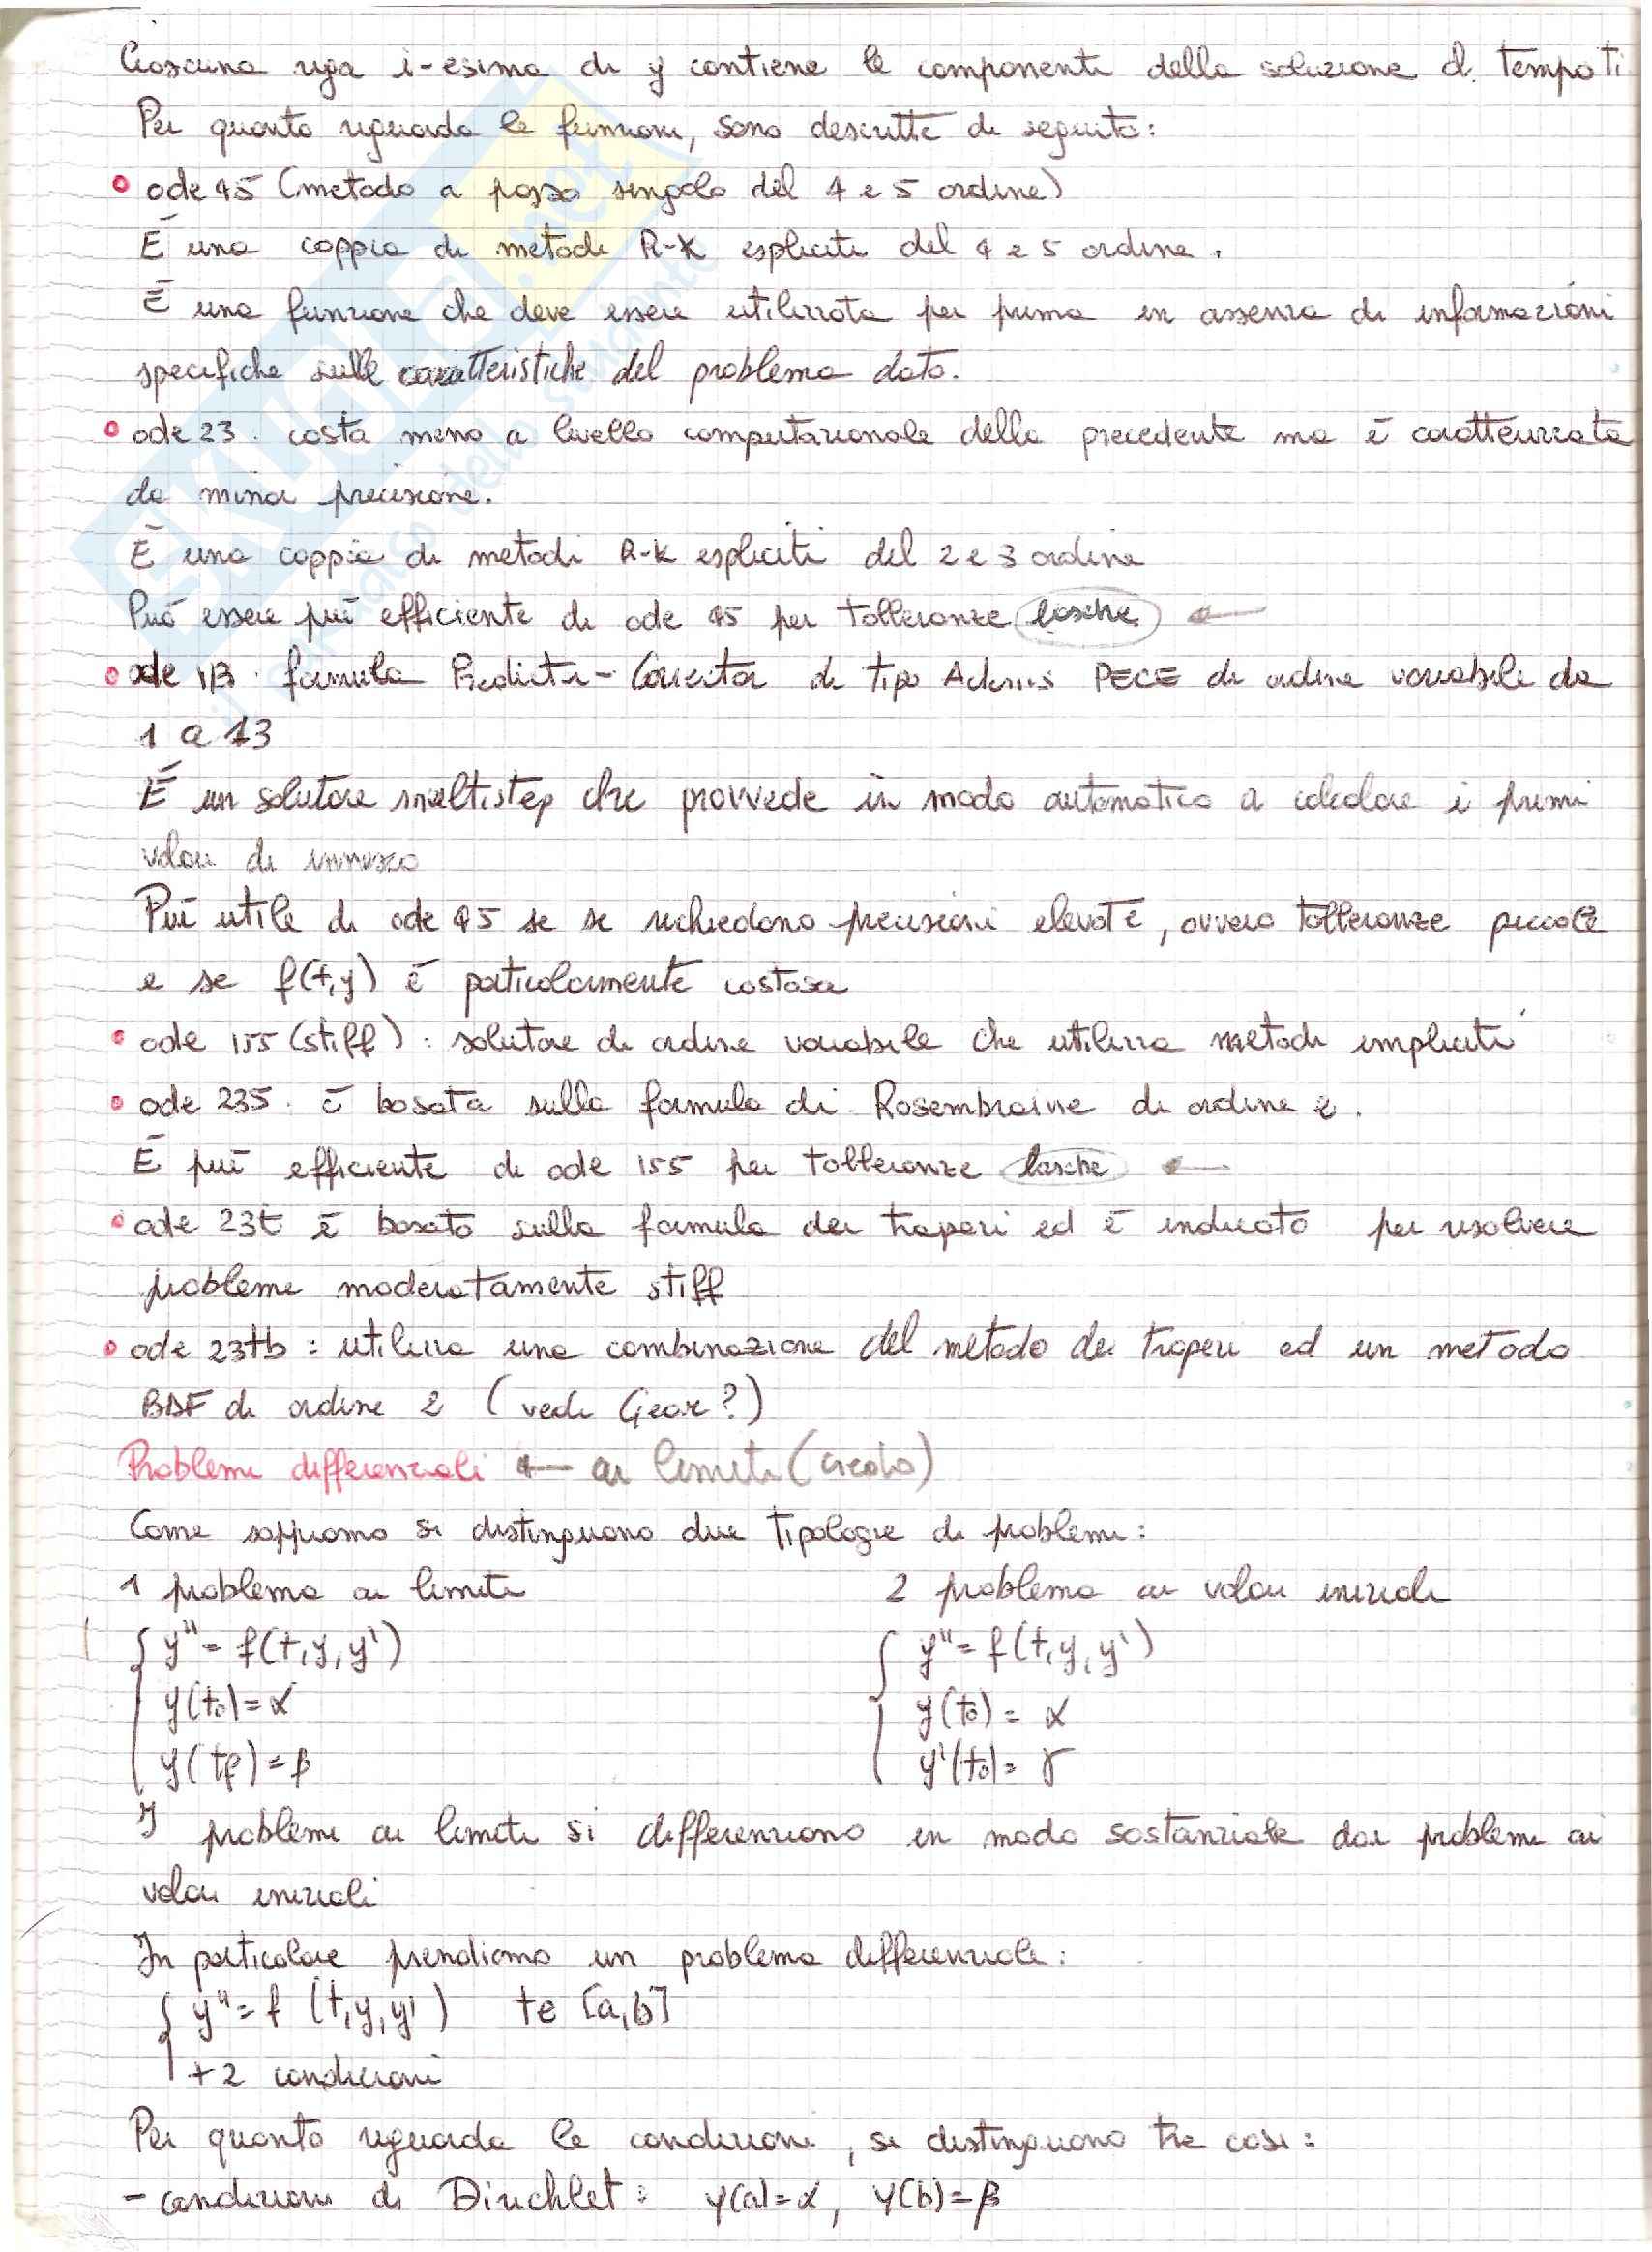 Ciascuna riga i-esima di y contiene le componenti della soluzione al tempo ti
Per quanto riguarda le funzioni, sono descritte di seguito:
ode 45 (metodo a passo singolo del 4 e 5 ordine)
È una coppia di metodi R-K espliciti del 4 e 5 ordine.
È una funzione che deve essere utilizzata per prima in assenza di informazioni
specifiche sulle caratteristiche del problema dato.
ode 23: costa meno a livello computazionale della precedente ma è caratterizzata
da minor precisione.
È una coppia di metodi R-K espliciti del 2 e 3 ordine
Può essere più efficiente di ode 45 per tolleranze lasche ←
ode 113: formula Predictor-Corrector di tipo Adams PECE di ordine variabile da
1 a 13
È un solutore multistep che provvede in modo automatico a calcolare i primi
valori di innesco
Più utile di ode 45 se si richiedono precisioni elevate, ovvero tolleranze piccole
e se f(t,y) è particolarmente costosa
ode 15s (stiff): solutore di ordine variabile che utilizza metodi impliciti
ode 23s: è basata sulla formula di Rosembraine di ordine 2.
È più efficiente di ode 15s per tolleranze lasche ←
ode 23t è basato sulla formula dei trapezi ed è indicato per risolvere
problemi moderatamente stiff
ode 23tb: utilizza una combinazione del metodo dei trapezi ed un metodo
BDF di ordine 2 (vedi Gear?)
Problemi differenziali ← ai limiti
Come sappiamo si distinguono due tipologie di problemi:
1 problema ai limiti 2 problema ai valori iniziali
y''= f(t,y,y') y''= f(t,y,y')
y(t₀)=α y(t₀)= α
y(tf)=β y'(t₀)= γ
I problemi ai limiti si differenziano in modo sostanziale dai problemi ai
valori iniziali
In particolare prendiamo un problema differenziale:
y''= f (t,y,y') t∈ [a,b]
+2 condizioni
Per quanto riguarda le condizioni, si distinguono tre casi:
- condizioni di Dirichlet: y(a)=α, y(b)=β